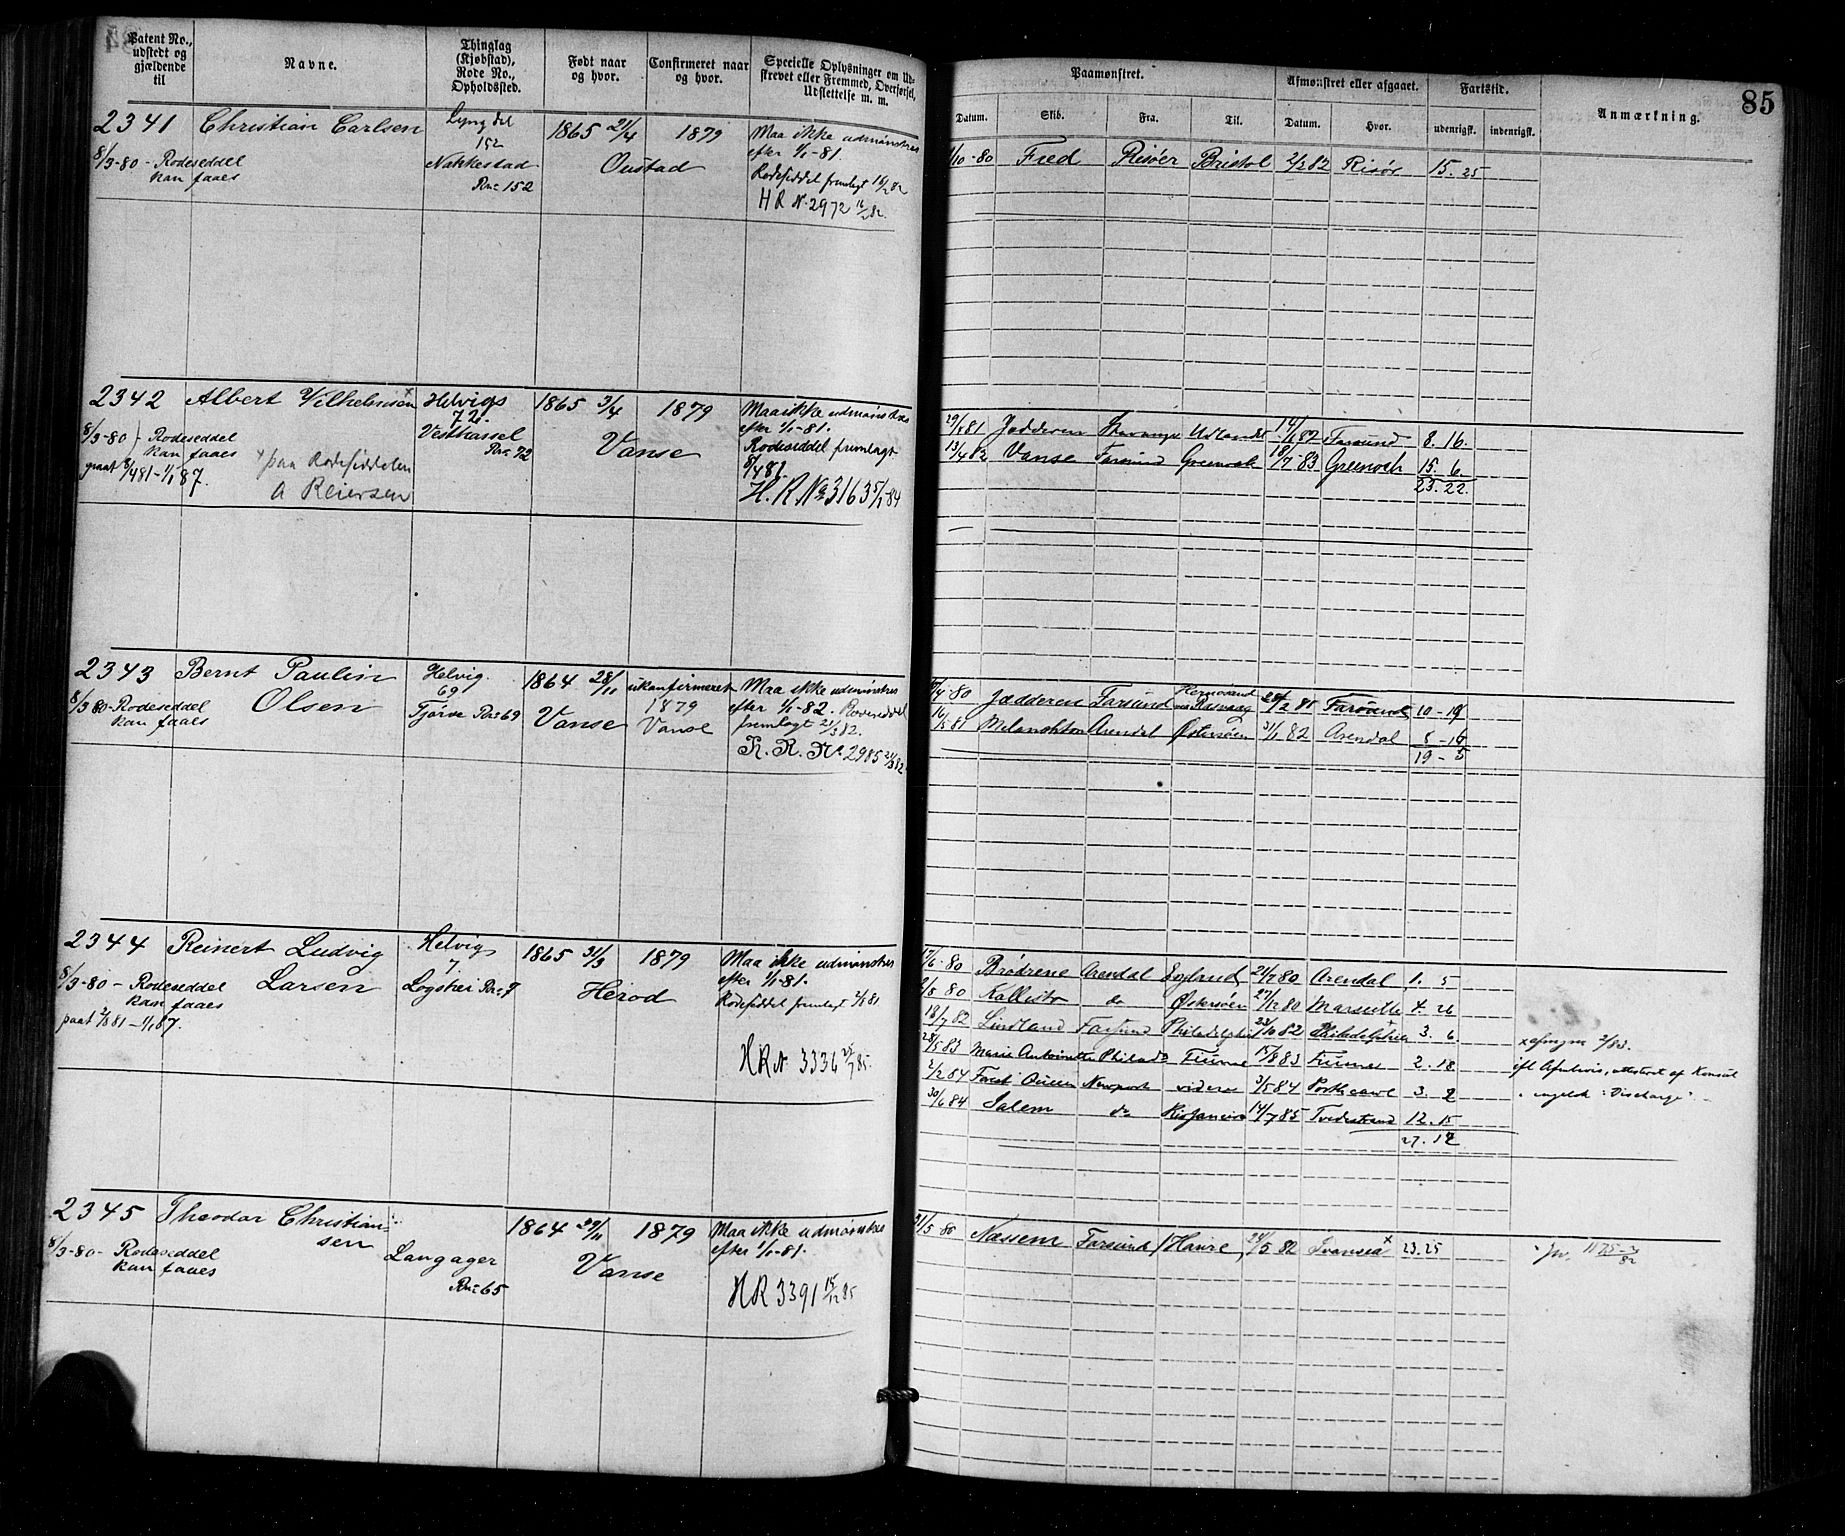 Patent No., udstedt og gjældende til
Navne.
Thinglag (Kjøbstad), Rode No., Opholdssted.
Født naar og hvor.
Confirmeret naar og hvor.
Specielle Oplysninger om Udskrevet eller Fremmed, Overførsel, Udslettelse m. m.
Paamønstret.
Afmønstret eller afgaaet.
Fartstid.
Anmærkning.
85
Datum.
Skib.
Fra.
Til.
Datum.
Hvor.
udenrigsk.
indenrigsk.
2341 Christian Carlsen
8/3-80 - Rodeseddel
kan faaes
Lyngdal
152
Nakkestad
Rn= 152
1865 21/4 1879
Oustad
Maa ikke udmønstres
efter 1/1-81.
Rodeseddel fremlagt 16/2 82
H R N. 2972 16/2 82.
/10-80 Fred Risøer Bristol 2/2 82 Risør 15. 25
2342 Albert Vilhelmsen x
8/3-80 - Rodeseddel
kan faaes
paat 8/4 81 - 1/1 87.
x paa Rodeseddelen
A Reiersen
Helvigs
72.
Vesthassel
Rn= 72
1865 3/4 1879
Vanse
Maa ikke udmønstres
efter 1/1-81.
Rodeseddel fremlagt
8/4 81.
H. R No 3163 5/1 84
29/ 81 Jædderen Stavanger Udlandet 14/1 82 Farsund 8. 16.
13/4 82 Vanse Farsund Greenock 18/7 83 Greenock 15. 6
23. 22.
2343 Bernt Paulin
Olsen
8/3 80 - Rodeseddel
kan faaes
Helvig.
69
Tjørve Rn= 69
1864 28/11 ukonfirmeret
1879
Vanse Vanse
Maa ikke udmønstres
efter 1/1-82. Rodeseddel
fremlagt 21/3 82.
H. R. No 2985 21/3 82
/4-80 Jædderen Farsund 2/2 81 Farsund 10 - 19
16/5 81 Melanchton Arendal Østersøen 31/1 82 Arendal 8 - 16
19 - 5
2344 Reinert Ludvig
Larsen
8/3-80 - Rodeseddel
kan faaes
paat 2/8 81 - 1/1 87.
Helvig
7
Logshei Rn= 7
1865 31/3 1879
Herod
Maa ikke udmønstres
efter 1/1-81.
Rodeseddel fremlagt 2/8 81
H R N. 3336 25/7 85.
17/6-80 Brødrene Arendal England 21/7 80 Arendal 1. 5
/8 80 Kallisto do Østersøen 27/12 80 Marseille 4. 26
18/7 82 Lindland Farsund Philadelphia 23/10 82 Philadelphia 3. 6.
28/5 83 Marie Antoinette Philad= Fiume 15/8 83 Fiume 2. 18
2/2 84 Forest Queen Newport videre 3/5 84 Porthcawl 3. 2
30/6 84 Salem do Rio Janeiro 14/7 85 Tvedestrand 12. 15
27. 12
ifl Afmbevis, attesteret af Konsul
engelsk "Discharge"
2345 Theodor Christian-
sen
8/3-80 - Rodeseddel
kan faaes
Langager
Rn= 65
1864 29/11 1879
Vanse
Maa ikke udmønstres
efter 1/1-81.
H R 3391 15/12 85
31/5 80 Nassem Farsund / Havre 24/5 82 Svansea x 23. 25